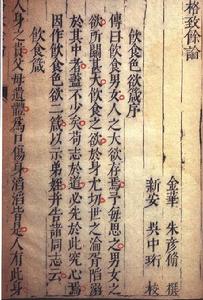 格致餘論
金華 朱彥修 撰
新安 吳中珩 校
飲食色欲箴序
傳曰飲食男女人之大欲存焉予每思之男女之
欲所關甚大飲食之欲於身尤切世之淪胥陷溺
於其中者蓋不少矣苟志於道必先於此究心焉
因作飲食色欲二箴以示弟姪并告諸同志云
飲食箴
人身之貴父母遺體為口傷身滔滔皆是人有此身